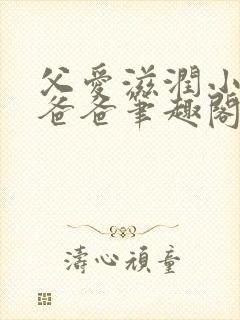 父愛滋潤小
爸爸筆趣閣
濤心頑童